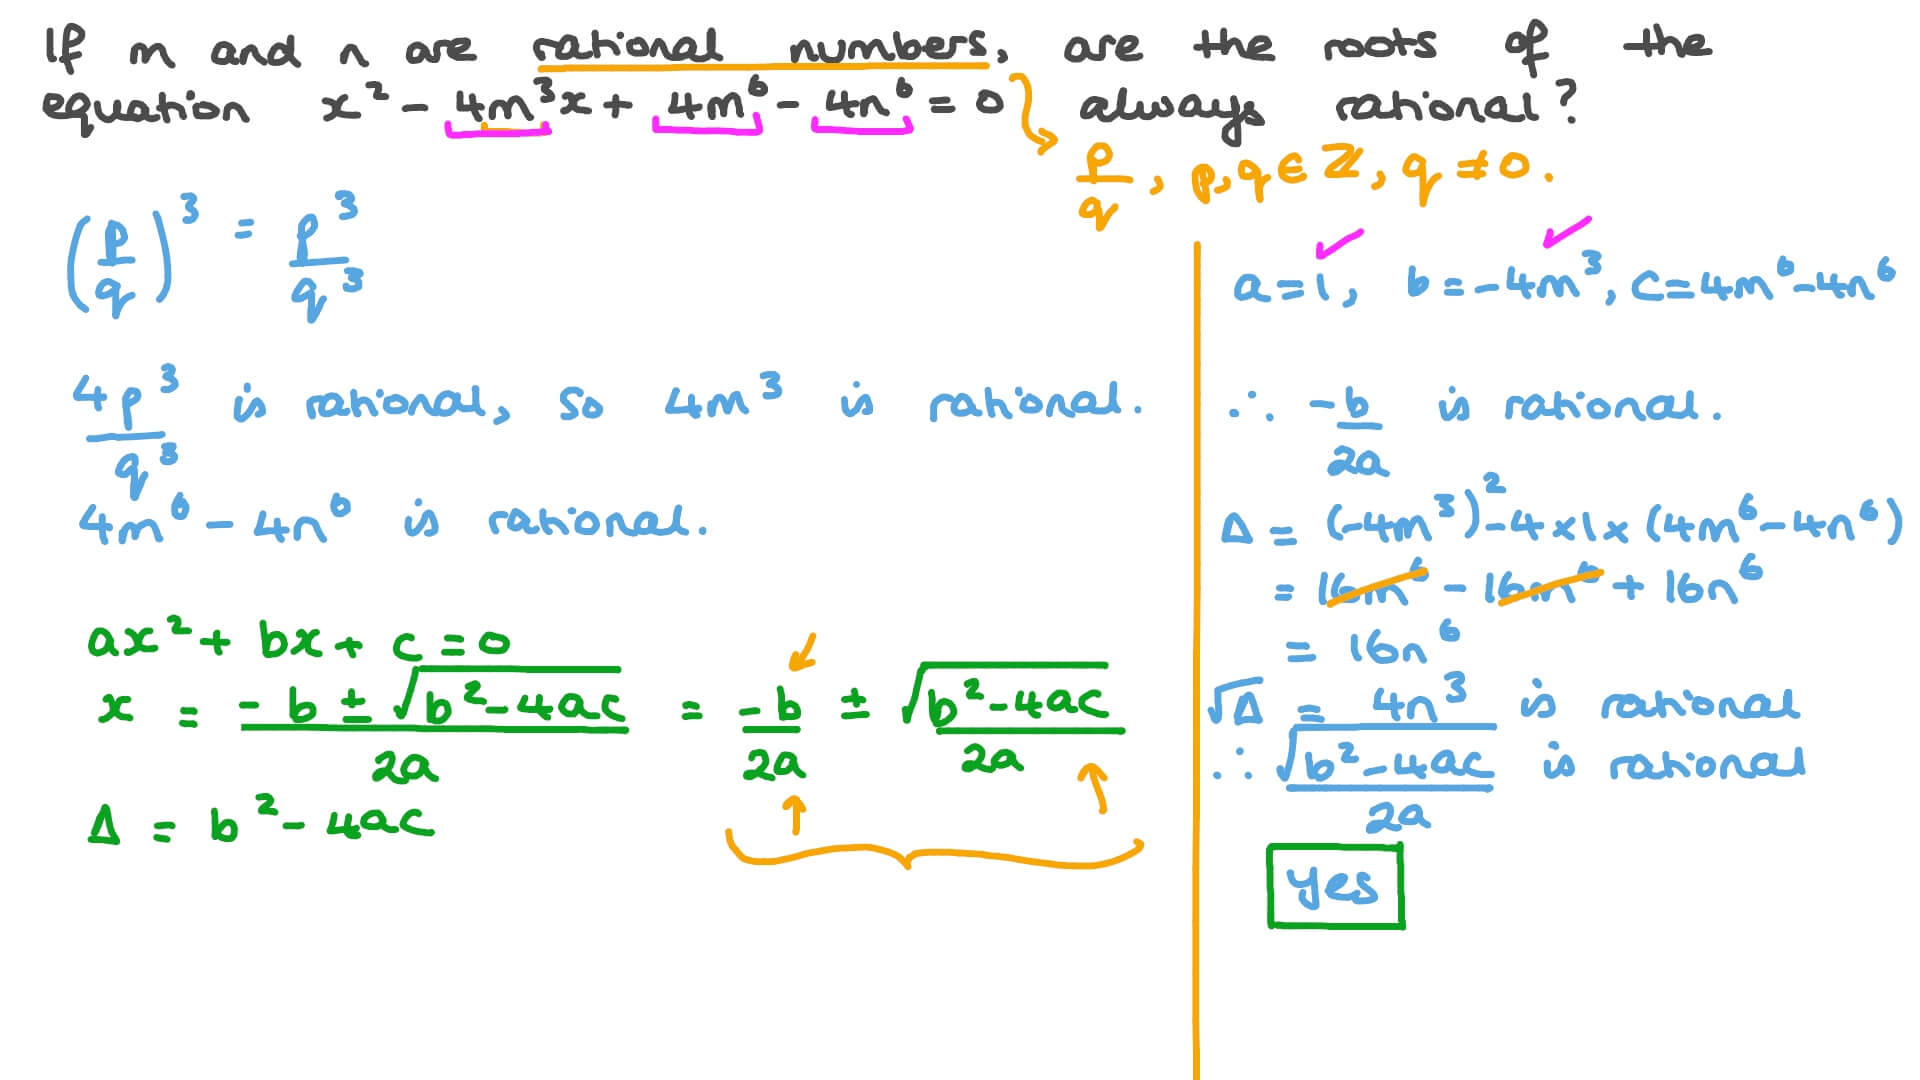 If m and n are rational numbers, are the roots of the
equation x² - 4m³x + 4m⁶ - 4n⁶ = 0 always rational?
p/q, p,q ∈ ℤ, q ≠ 0.
(p/q)³ = p³/q³
4p³/q³ is rational, so 4m³ is rational.
4m⁶ - 4n⁶ is rational.
ax² + bx + c = 0
x = (-b ± √(b² - 4ac))/2a = -b/2a ± √(b² - 4ac)/2a
Δ = b² - 4ac
a = 1, b = -4m³, c = 4m⁶ - 4n⁶
∴ -b/2a is rational.
Δ = (-4m³)² - 4 × 1 × (4m⁶ - 4n⁶)
= 16m⁶ - 16m⁶ + 16n⁶
= 16n⁶
√Δ = 4n³ is rational
∴ √(b² - 4ac)/2a is rational
yes